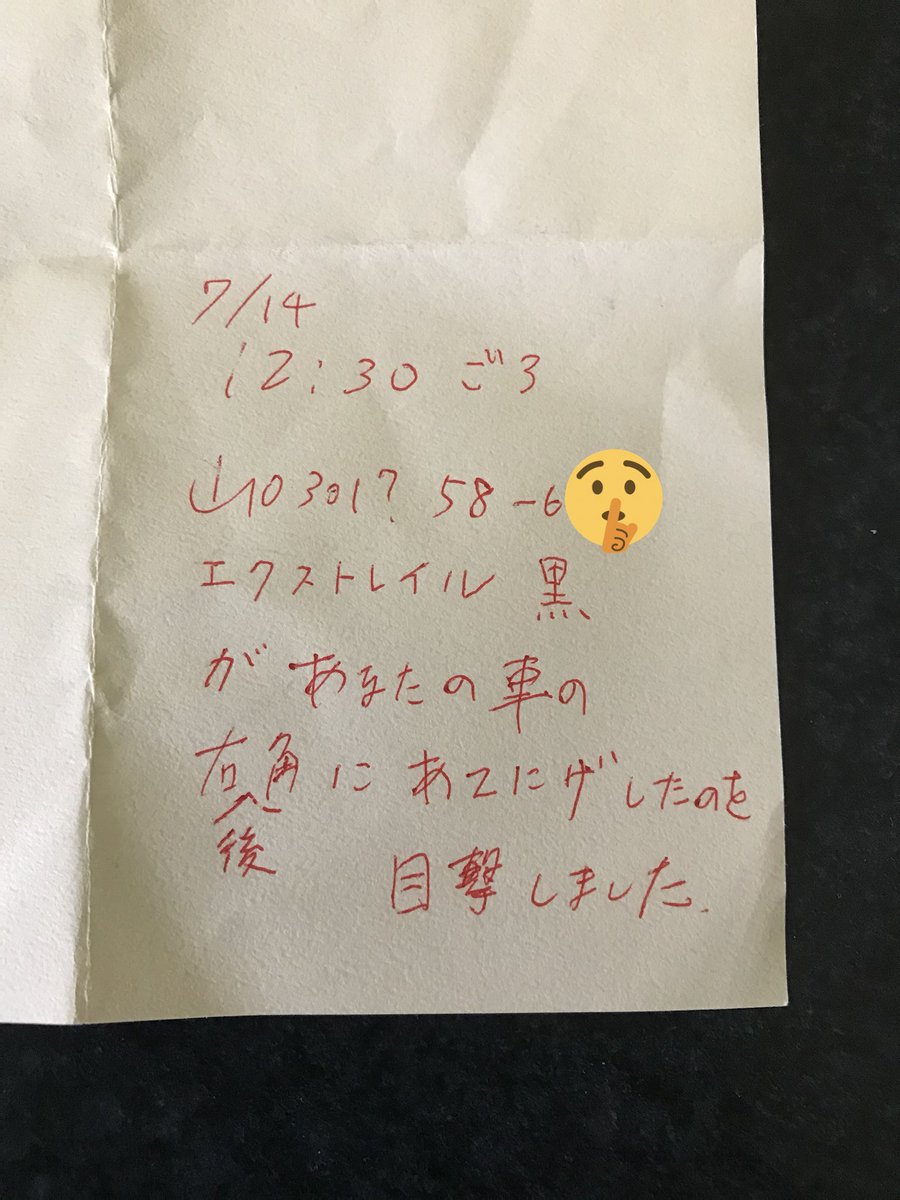 7/14
12:30 ごろ
山口 301? 58-6
エクストレイル 黒
が あなたの車の
右後角に あてにげしたのを
目撃しました.